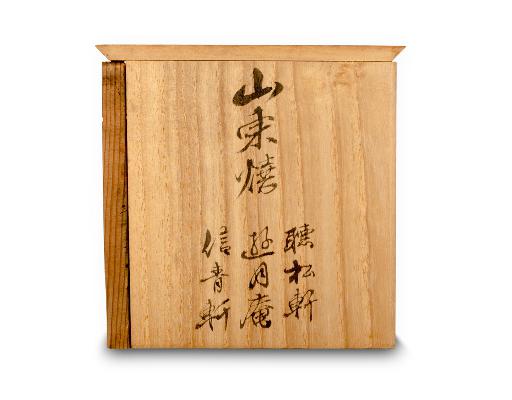 山東焼
聴松軒
遊月庵
信青軒